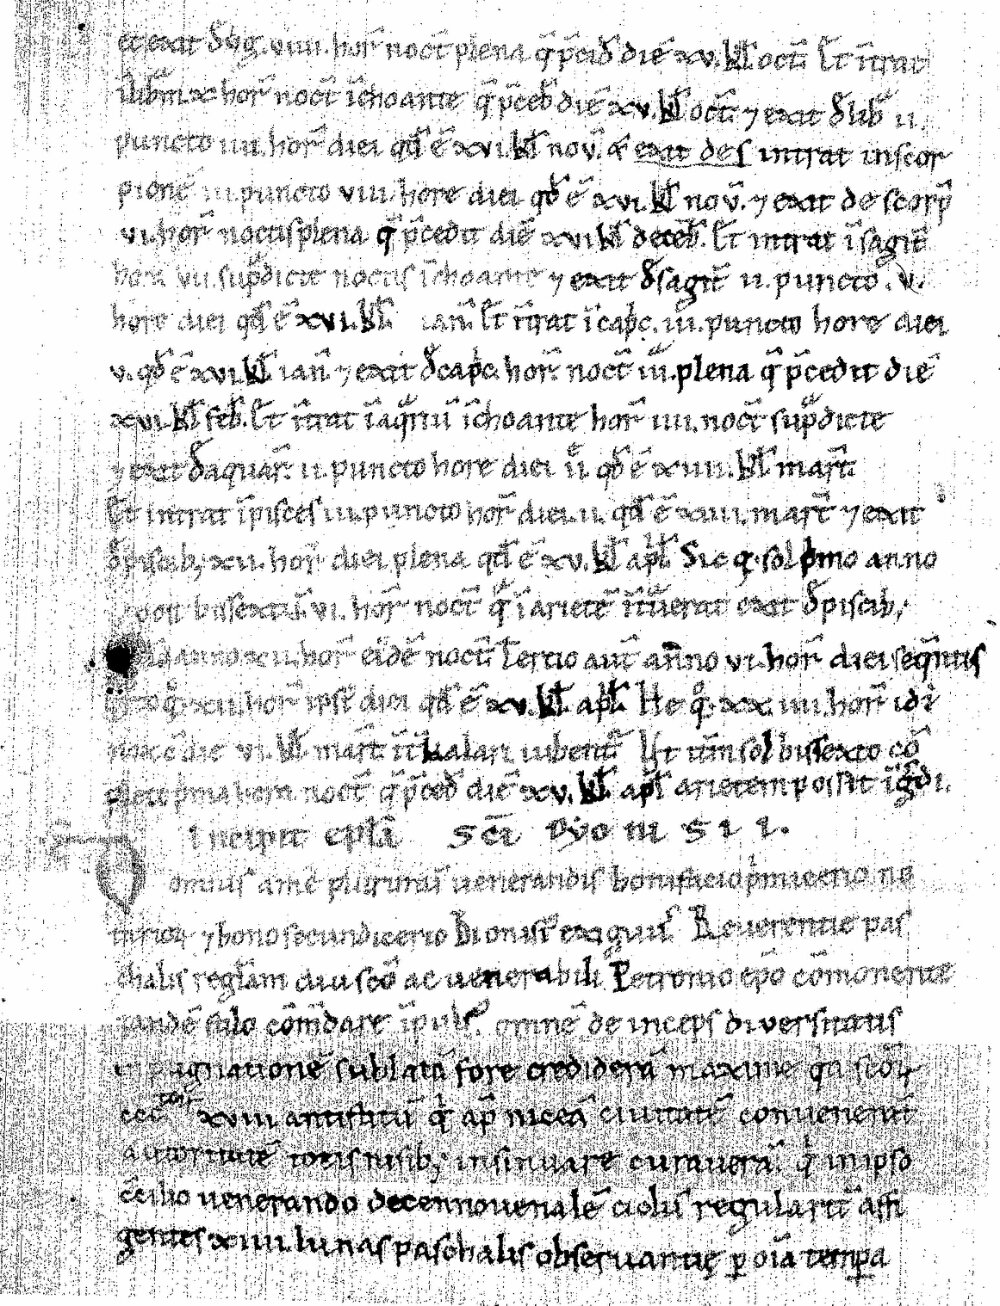 et exit de uirg. viiii. hor̄ noct̄ plena q̄ p̄ced̄ diē xv. kł oct̄. Et īt̄rat
ī libm̄ x hor̄ noct̄ īchoante q̄ p̄ced̄ diē xv. kł oct̄. ⁊ exit d̄ lib̄ ii.
puncto iiii. hor̄ diei qd̄ ē xvi. kł nov̄. exit de s intrat in scor
pionē iii. puncto viii. hore diei qd̄ ē xvi. kł nov̄. ⁊ exit de scorp̄
vi. hor̄ noctis plena q̄ p̄cedit diē xvi kł deceb̄. Et intrat ī sagit̄
hora vii. sup̄dicte noctis īchoante ⁊ exit d̄ sagit̄ ii. puncto. v.
hore diei qd̄ ē xvi. kł ian̄. Et īt̄rat ī cap̄c. iii. puncto hore diei
v. qd̄ ē xvi. kł ian̄ ⁊ exit d̄ cap̄c. hor̄ noct̄ iii. plena q̄ p̄cedit diē
xvi. kł feb̄. Et īt̄rat ī aq̄riū īchoante hor̄ iiii. noct̄ sup̄dicte
⁊ exit d̄ aquar̄. ii. puncto hore diei ii qd̄ ē xiiii. kł mart̄.
Et intrat ī pisces iii. puncto hor̄ diei. ii. qd̄ ē xiiii. mart̄ ⁊ exit
d̄ piscib; xii. hor̄ diei plena qd̄ ē xv. kł apł. Sic q; sol p̄mo anno
post bissextū. vi. hor̄ noct̄ q̄ ī arietē īt̄uerat exit d̄ piscib;
anno xii. hor̄ eidē noct̄. Tertio aut̄ anno vi. hor̄ diei seq̄ntis
q̄rto xii. hor̄ ipsi diei qd̄ ē xv. kł apł. He q; xxiiii. hor̄ idi
die vi. kł mart̄ īt̄kalari iubent̄. Ut it̄m sol bissexto cō
pleto p̄ma hora noct̄ q̄ p̄ced̄ diē xv. kł apł arietem possit īḡdi.
Incipit epłā sc̄i dyonisii.
Domius amē plurimū uenerandis bonifacio p̄micerio no
tarior ⁊ bono secundicerio Dionisi exiguus. Reuerentie pas
chalis regłam diu sc̄o ac uenerabili Petronio ep̄o cōmonente
tandē stilo cōm̄dare īpuls; omnē deinceps diversitatis
inpugnationē sublatā fore credidera maxime qa sc̄o
ccc xviii antistitū q̄ ap̄ niceā ciuitatē convenerūt
autoritatē totis nisib; insinuare curaverā. q̄ in ipso
cc̄ilio uenerando decennouenalē ciclū regulariū affi
gentes xiiii. lunas paschalis obseruantię p̱ oīa temp̱a